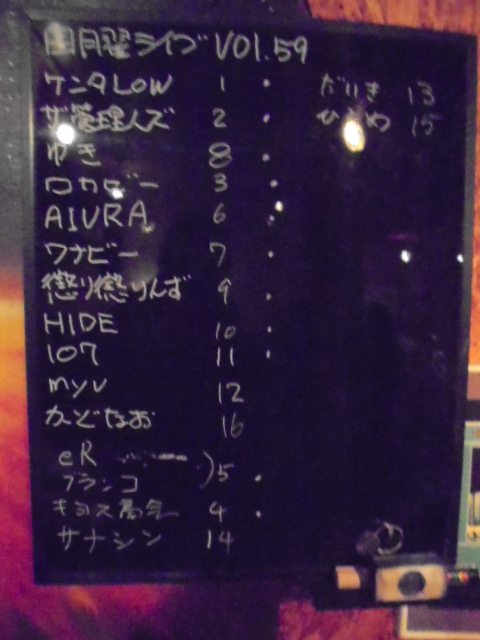 月曜ライブ VOl.59
ケンタLOW 1 ・
ザ管理人ズ 2 ・
ゆき 8 ・
ロカビー 3 ・
AIURA 6 ・
ワナビー 7 ・
懲り懲りんず 9 ・
HIDE 10 ・
107 11 ・
myu 12
かどなお 16
eR
ブランコ )5 ・
キヨス 4 ・
サナシン 14
だいき 13
ひ わ 15